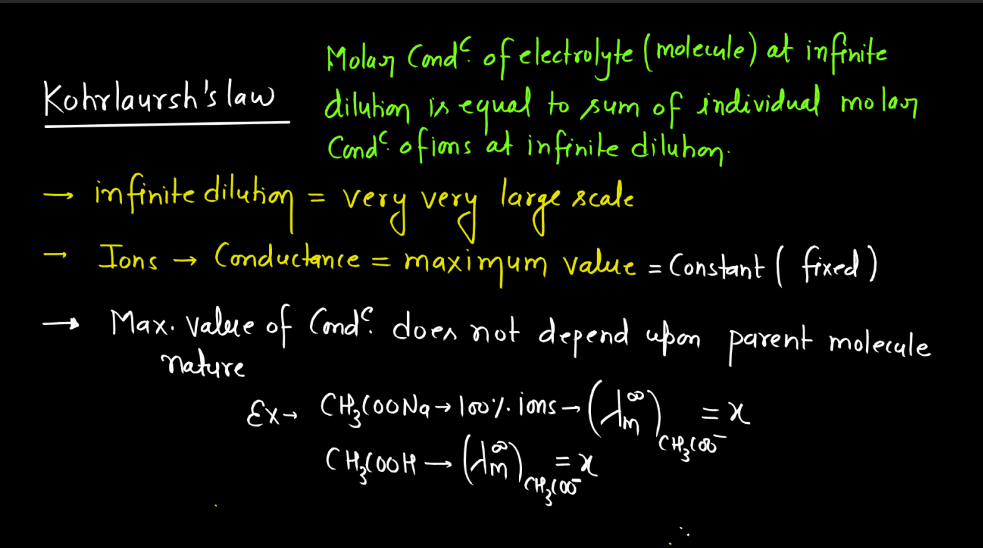 Kohrlaursh's law
Molar Condᶜ. of electrolyte (molecule) at infinite
dilution is equal to sum of individual molar
Condᶜ. of ions at infinite dilution.
→ infinite dilution = very very large scale
→ Ions → Conductance = maximum value = Constant (fixed)
→ Max. value of Condᶜ. does not depend upon parent molecule
nature
Ex→ CH₃COONa → 100%. ions → (λm^∞)CH₃COO⁻ = x
CH₃COOH → (λm^∞)CH₃COO⁻ = x